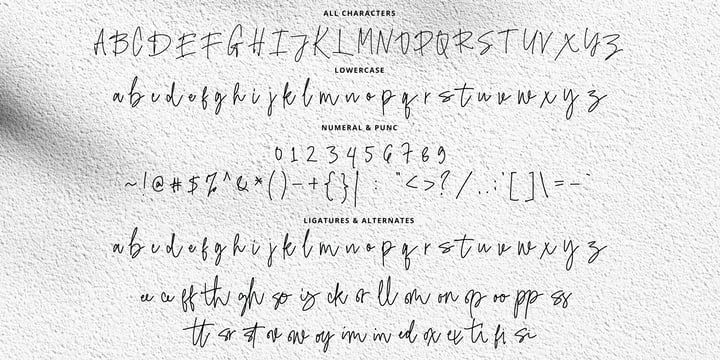 ALL CHARACTERS
A B C D E F G H I J K L M N O P Q R S T U V X Y Z
LOWERCASE
a b c d e f g h i j k l m n o p q r s t u v w x y z
NUMERAL & PUNC
0 1 2 3 4 5 6 7 8 9
~ ! @ # $ % ^ & * ( ) – + { } | : " < > ? / . , ; ' [ ] \ = - `
LIGATURES & ALTERNATES
a b c d e f g h i j k l m n o p q r s t u v w x y z
ee ff th gh so is ck or ll om on op oo pp ss
tt sr st ov ow oy im in ed ox ex ti fi si